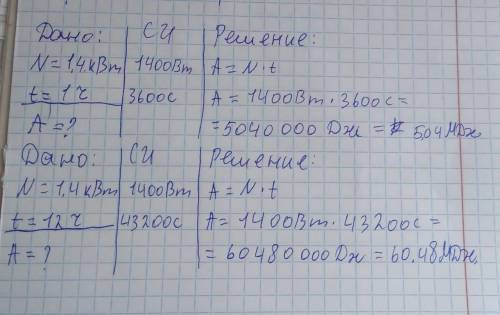 Дано: СИ Решение:
N=1,4кВт 1400Вт A=N·t
t=1ч 3600с A=1400Вт·3600с=
A=? =5040000Дж= 5,04МДж
Дано: СИ Решение:
N=1,4кВт 1400Вт A=N·t
t=12ч 43200с A=1400Вт·43200с=
A=? =60480000Дж=60,48МДж